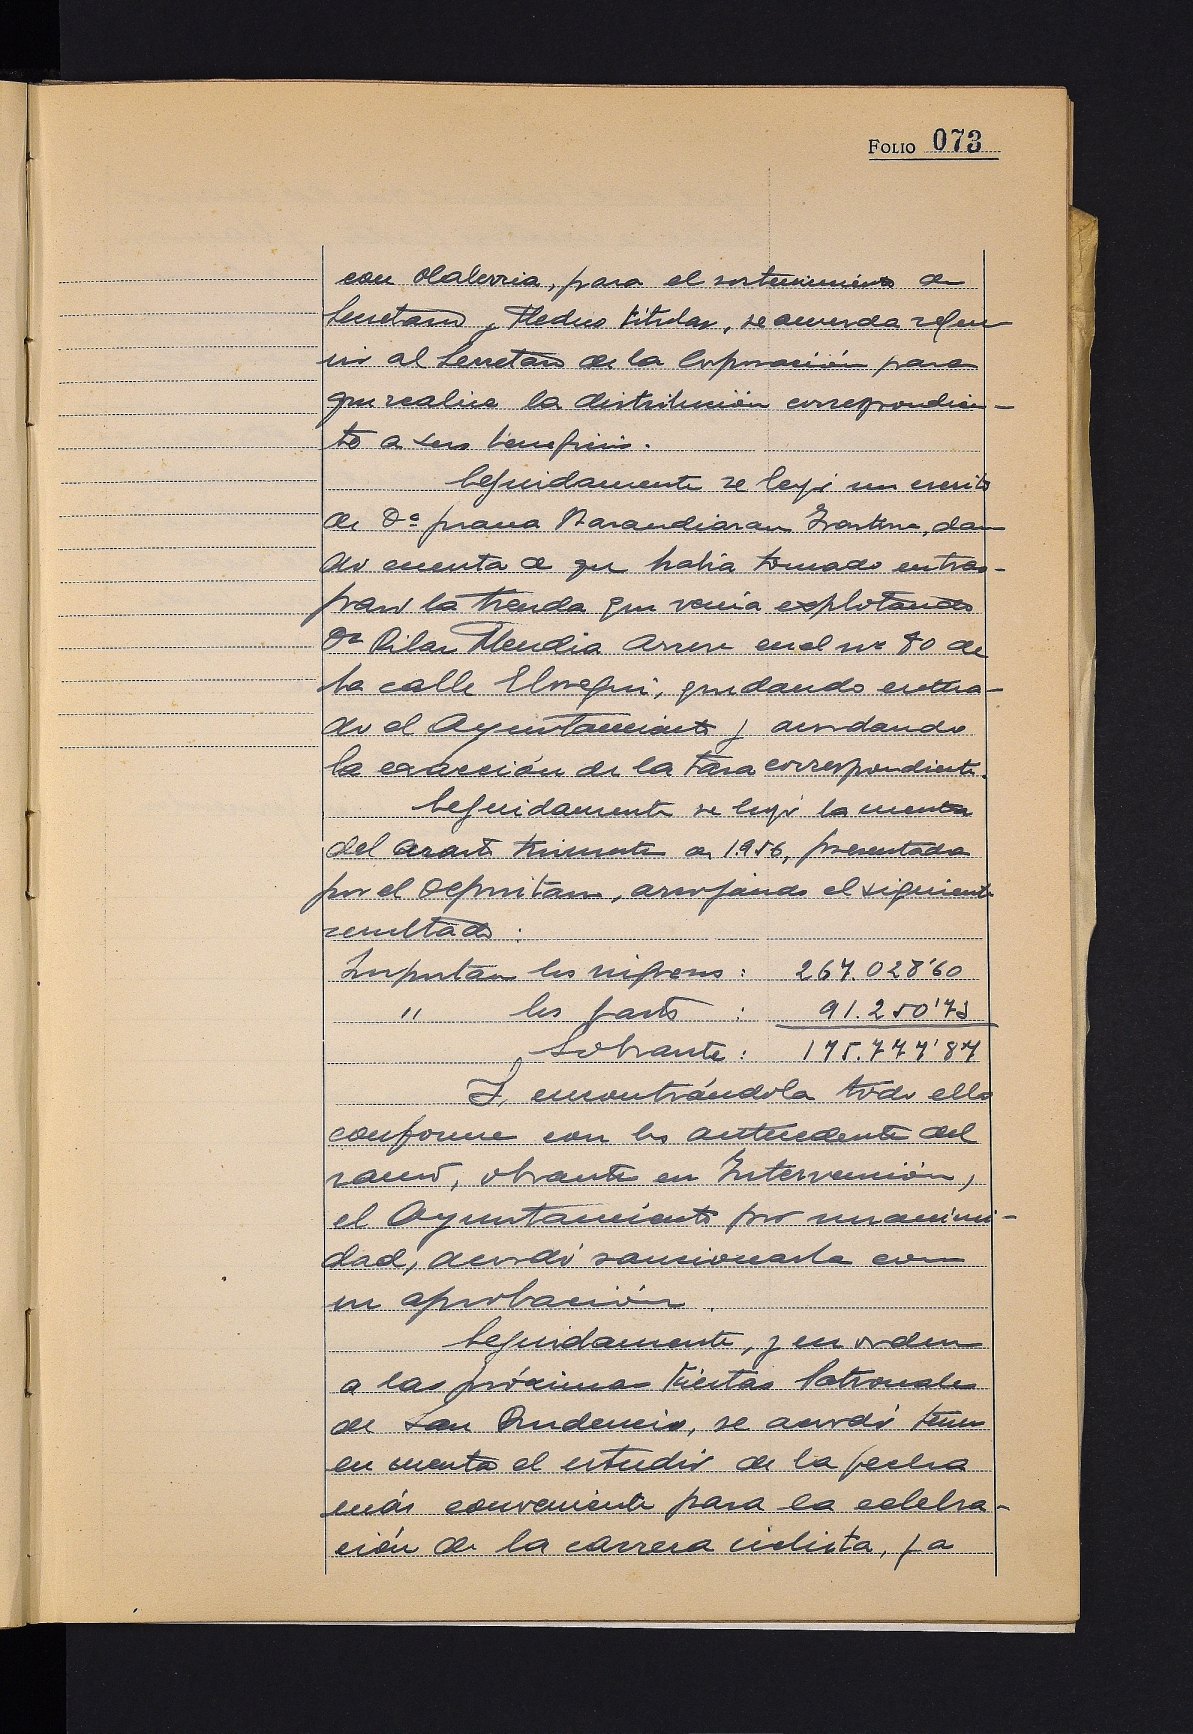 FOLIO 073
con Olaberria, para el sostenimiento de
Secretario y Medico titular, se acuerda reque
rir al Secretario de la Corporación para
que realice la distribución correspondien-
te a sus beneficios.
Seguidamente se leyó un escrito
de Dª Juana Barandiaran, dan
do cuenta de que habia tomado en tras-
paso la tienda que venia explotando
Dª Pilar Mendia en el nº 80 de
la calle Elosegui, quedando entera-
do el Ayuntamiento y acordando
la exacción de la tasa correspondiente.
Seguidamente se leyó la cuenta
del cuarto trimestre de 1.956, presentada
por el Depositario, arrojando el siguiente
resultado:
Importan los ingresos: 267.028'60
" los gastos : 91.250'73
Sobrante: 175.777'87
Y, encontrándola todo ello
conforme con los antecedente del
ramo, obrante en Intervención,
el Ayuntamiento por unanimi-
dad, acordó sancionarla con
su aprobación.
Seguidamente, y en orden
a las próximas Fiestas Patronales
de San Prudencio, se acordó tener
en cuenta el estudio de la fecha
más conveniente para la celebra-
ción de la carrera ciclista, ya